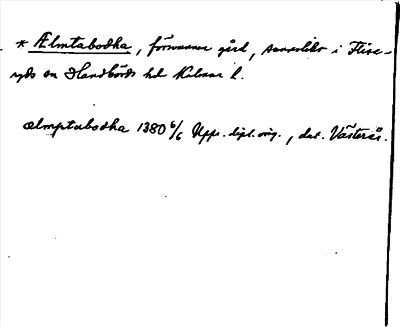 * Ælmtabodha, försvunnen gård, sannolikt i Flise-
ryds sn Handbörds hd Kalmar l.
ælmptabodha 1380 6/6 Upps. dipl. orig., dat. Västerås.